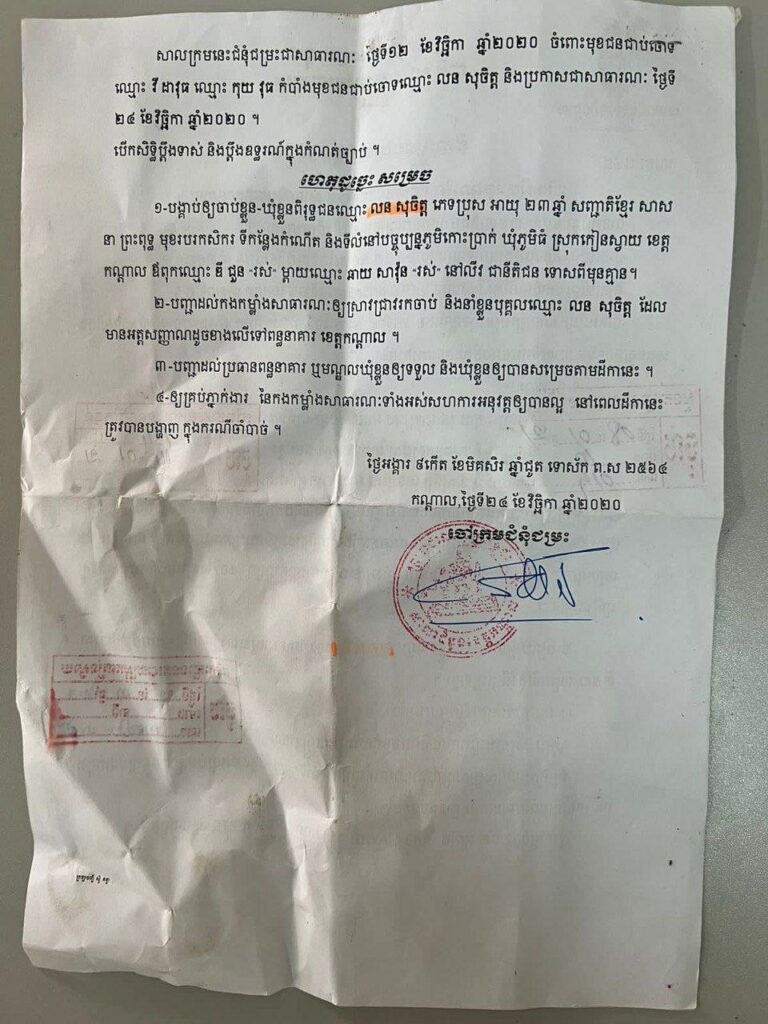 សាលក្រមនេះជំនុំជម្រះជាសាធារណៈ ថ្ងៃទី១២ ខែវិច្ឆិកា ឆ្នាំ២០២០ ចំពោះមុខជនជាប់ចោទ
ឈ្មោះ វី ដាវុធ ឈ្មោះ កុយ វុធ កំបាំងមុខជនជាប់ចោទឈ្មោះ លន សុចិត្ត និងប្រកាសជាសាធារណៈ ថ្ងៃទី
២៤ ខែវិច្ឆិកា ឆ្នាំ២០២០ ។
បើកសិទ្ធិប្តឹងទាស់ និងប្តឹងឧទ្ធរណ៍ក្នុងកំណត់ច្បាប់ ។
ហេតុដូច្នេះ សម្រេច
១-បង្គាប់ឲ្យចាប់ខ្លួន-ឃុំខ្លួនពិរុទ្ធជនឈ្មោះ លន សុចិត្ត ភេទប្រុស អាយុ ២៣ឆ្នាំ សញ្ជាតិខ្មែរ សាស
នា ព្រះពុទ្ធ មុខរបរកសិករ ទីកន្លែងកំណើត និងទីលំនៅបច្ចុប្បន្នភូមិកោះប្រាក់ ឃុំភូមិធំ ស្រុកកៀនស្វាយ ខេត្ត
កណ្តាល ឪពុកឈ្មោះ ឌី ជួន "រស់" ម្តាយឈ្មោះ ឆាយ សាវ៉ុន "រស់" នៅលីវ ជានីតិជន ទោសពីមុនគ្មាន។
២-បញ្ជាដល់កងកម្លាំងសាធារណៈឲ្យស្រាវជ្រាវរកចាប់ និងនាំខ្លួនបុគ្គលឈ្មោះ លន សុចិត្ត ដែល
មានអត្តសញ្ញាណដូចខាងលើទៅពន្ធនាគារ ខេត្តកណ្តាល ។
៣-បញ្ជាដល់ប្រធានពន្ធនាគារ ឬមណ្ឌលឃុំខ្លួនឲ្យទទួល និងឃុំខ្លួនឲ្យបានសម្រេចតាមដីកានេះ ។
៤-ឲ្យគ្រប់ភ្នាក់ងារ នៃកងកម្លាំងសាធារណៈទាំងអស់សហការអនុវត្តឲ្យបានល្អ នៅពេលដីកានេះ
ត្រូវបានបង្ហាញ ក្នុងករណីចាំបាច់ ។
ថ្ងៃអង្គារ ៩កើត ខែមិគសិរ ឆ្នាំជូត ទោស័ក ព.ស ២៥៦៤
កណ្តាល,ថ្ងៃទី២៤ ខែវិច្ឆិកា ឆ្នាំ២០២០
ចៅក្រមជំនុំជម្រះ